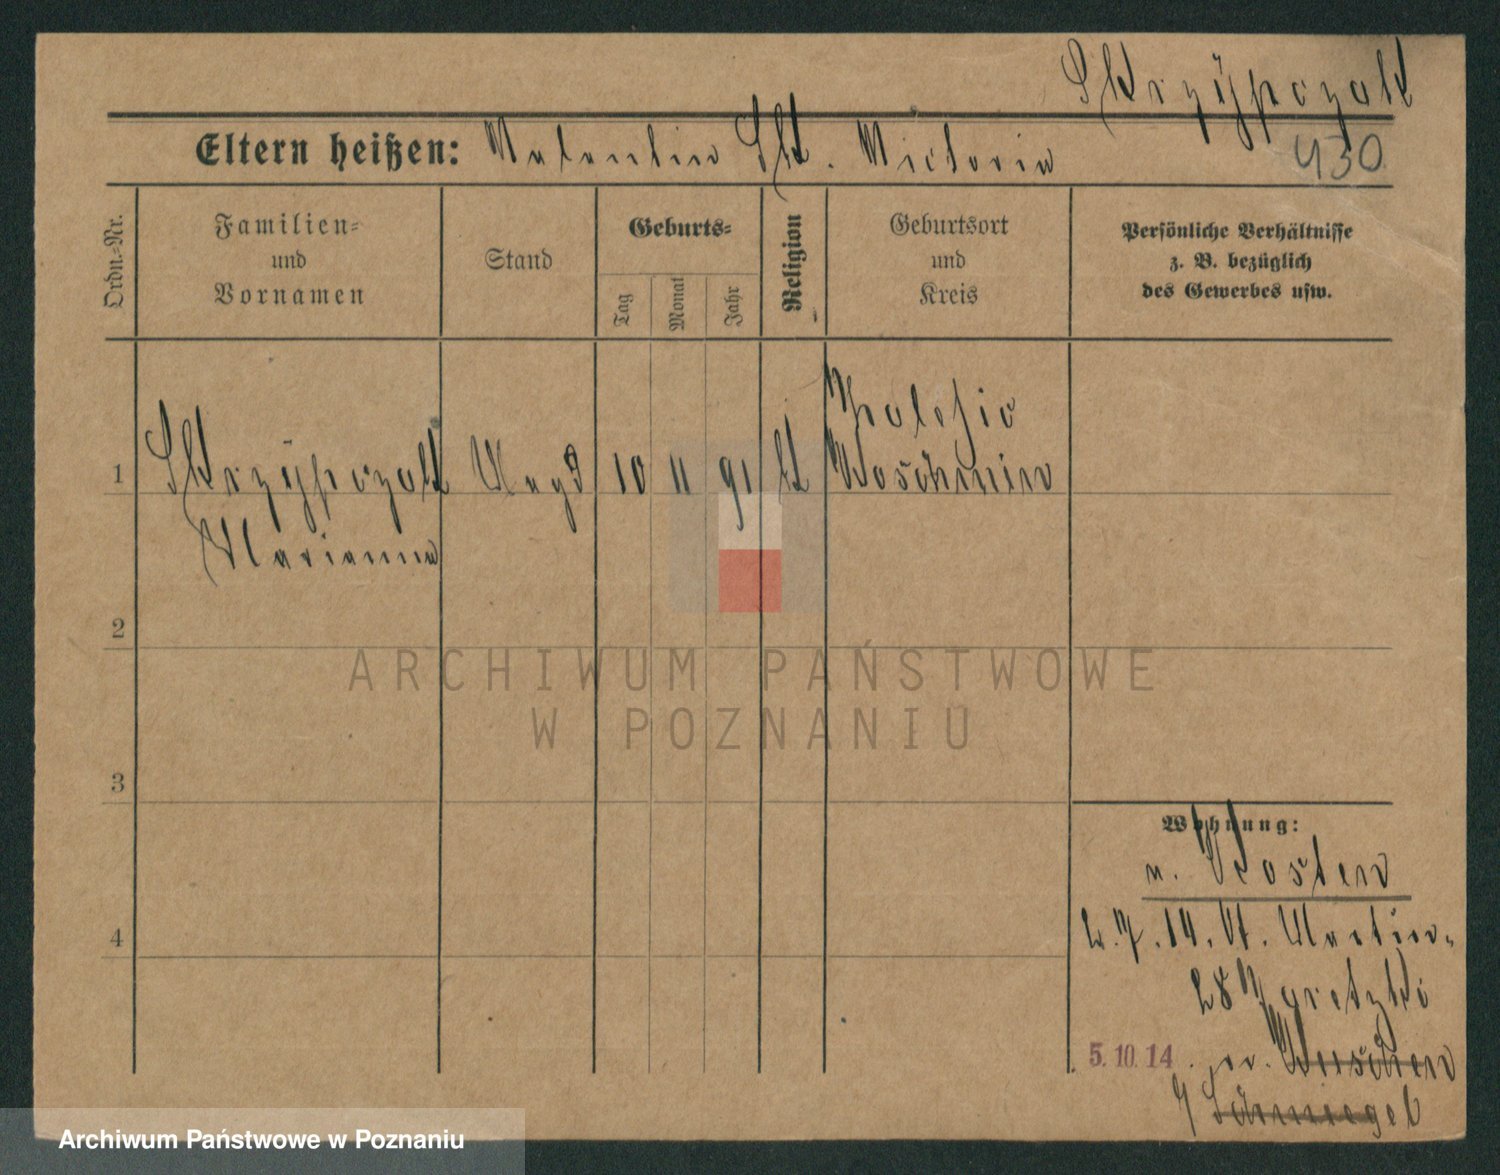 Skrzypczak
Eltern heißen: Valentin Sk. Victoria
430
Ordn.=Nr.
Familien=
und
Vornamen
Stand
Geburts=
Tag
Monat
Jahr
Religion
Geburtsort
und
Kreis
Persönliche Verhältnisse
z. B. bezüglich
des Gewerbes usw.
1
Skrzypczak Magd 10 11 91 k
Marianna
2
3
4
Wohnung:
n. Kosten
2. 7. 14. St. Martin-
28
5. 10. 14
Schmiegel
ARCHIWUM PAŃSTWOWE
W POZNANIU
Archiwum Państwowe w Poznaniu